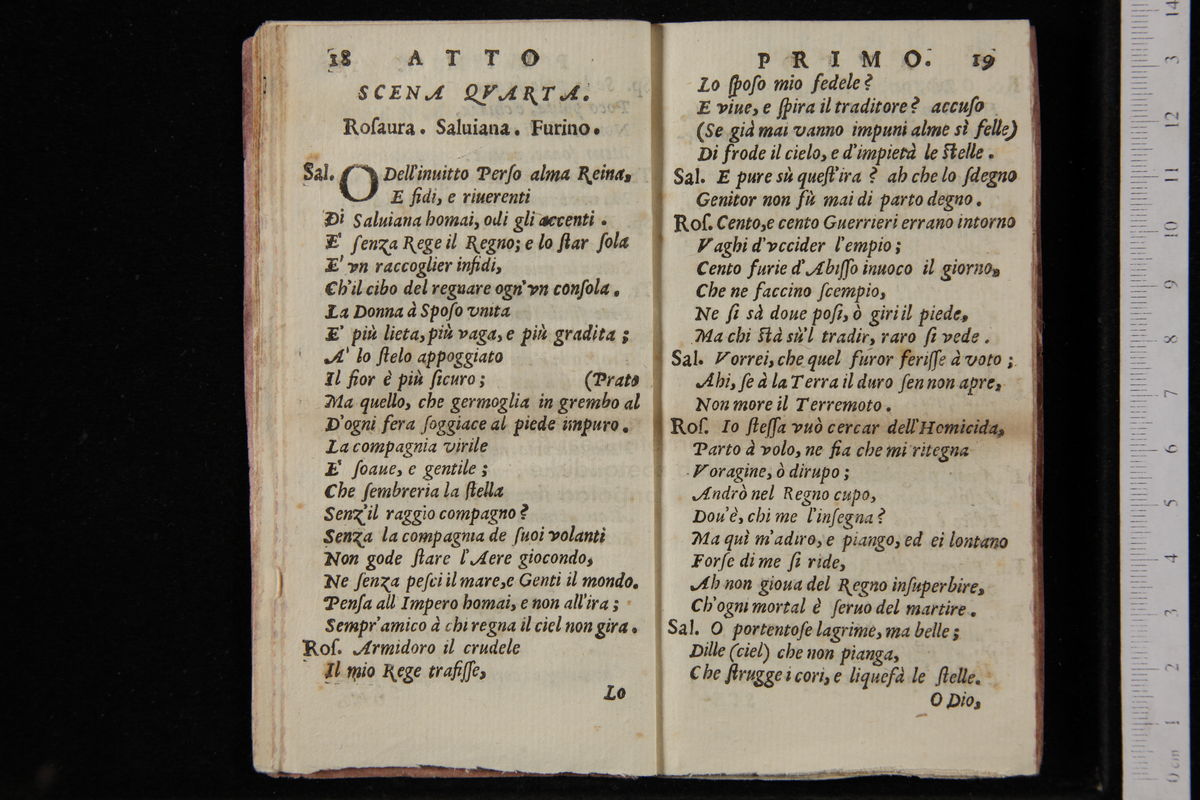 18 ATTO
SCENA QVARTA.
Roſaura. Saluiana. Furino.
Sal. O Dell'inuitto Perſo alma Reina,
E fidi, e riuerenti
Di Saluiana homai, odi gli accenti.
E' ſenza Rege il Regno; e lo ſtar ſola
E' vn raccoglier infidi,
Ch'il cibo del regnare ogn'vn conſola.
La Donna à Spoſo vnita
E' più lieta, più vaga, e più gradita;
A' lo ſtelo appoggiato
Il fior è più ſicuro; (Prato
Ma quello, che germoglia in grembo al
D'ogni fera ſoggiace al piede impuro.
La compagnia virile
E' ſoaue, e gentile;
Che ſembreria la ſtella
Senz'il raggio compagno?
Senza la compagnia de ſuoi volanti
Non gode ſtare l'Aere giocondo,
Ne ſenza peſci il mare, e Genti il mondo.
Penſa all Impero homai, e non all'ira;
Sempr'amico à chi regna il ciel non gira.
Roſ. Armidoro il crudele
Il mio Rege trafiſſe,
Lo
PRIMO. 19
Lo ſpoſo mio fedele?
E viue, e ſpira il traditore? accuſo
(Se già mai vanno impuni alme sì felle)
Di frode il cielo, e d'impietà le Stelle.
Sal. E pure sù queſt'ira? ah che lo ſdegno
Genitor non fù mai di parto degno.
Roſ. Cento, e cento Guerrieri errano intorno
Vaghi d'vccider l'empio;
Cento furie d'Abiſſo inuoco il giorno,
Che ne faccino ſcempio,
Ne ſi sà doue poſi, ò giri il piede,
Ma chi Stà sù'l tradir, raro ſi vede.
Sal. Vorrei, che quel furor feriſſe à voto;
Ahi, ſe à la Terra il duro ſen non apre,
Non more il Terremoto.
Roſ. Io ſteſſa vuò cercar dell'Homicida,
Parto à volo, ne fia che mi ritegna
Voragine, ò dirupo;
Andrò nel Regno cupo,
Dou'è, chi me l'inſegna?
Ma quì m'adiro, e piango, ed ei lontano
Forſe di me ſi ride,
Ah non gioua del Regno inſuperbire,
Ch'ogni mortal è ſeruo del martire.
Sal. O portentoſe lagrime, ma belle;
Dille (ciel) che non pianga,
Che ſtrugge i cori, e liquefà le ſtelle.
O Dio,
0 cm 1 2 3 4 5 6 7 8 9 10 11 12 3 14